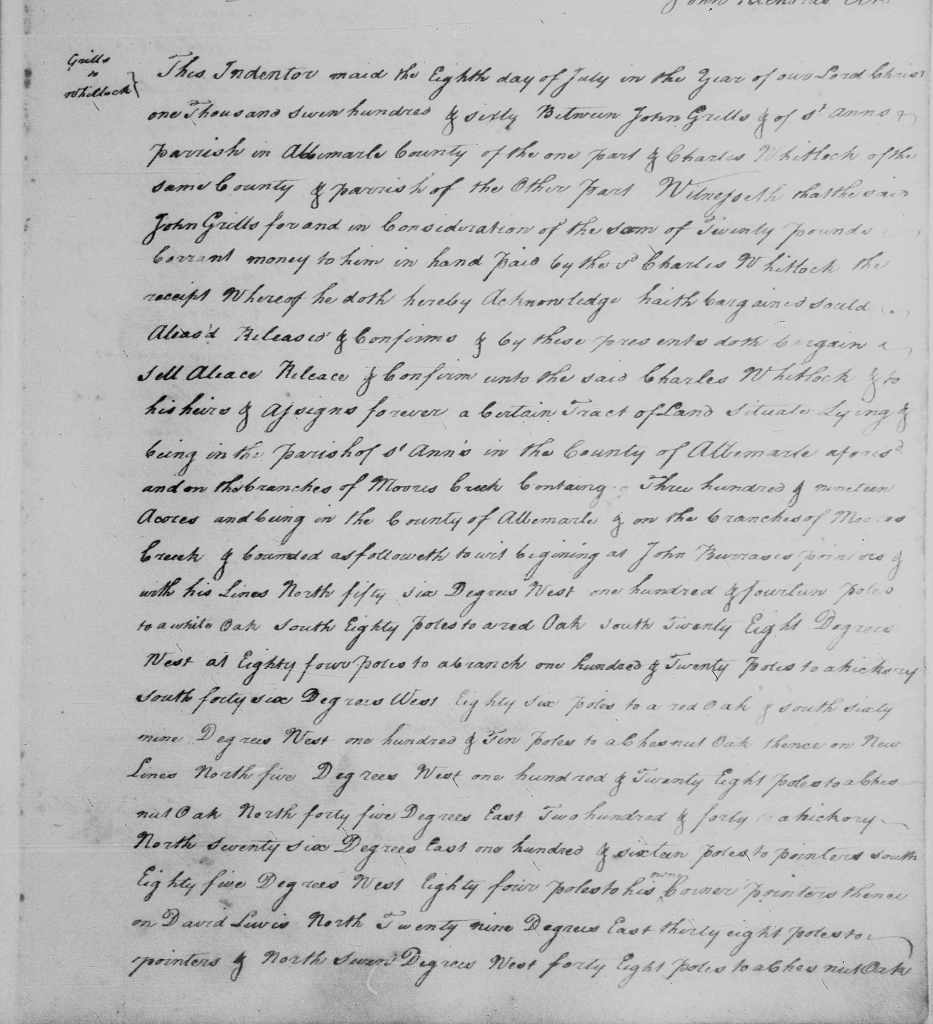 John Nicholas
Grills
to
Whitlock
This Indentor maid the Eighth day of July in the Year of our Lord Christ
one Thousand Seven hundred & sixty Between John Grills & of St Anns
parrish in Albemarle County of the one part & Charles Whitlock of the
same County & parrish of the Other Part Witnesseth that the said
John Grills for and in Consideration of the Sum of Twenty pounds
Corrant money to him in hand Paid by the sd Charles Whitlock the
receipt Whereof he doth hereby Acknowledge haith bargained sould
Aleas'd Released & Confirms & by these presents doth bargain
Sell Aleace Releace & Confirm unto the said Charles Whitlock & to
his heirs & Assigns forever a Certain Tract of Land Situate Lying &
being in the parish of St Ann's in the County of Albemarle aforesd
and on the branches of Moores Creek Containg Three hundred & nineteen
Acores and being in the County of Albemarle & on the branches of Moores
Creek & bounded as followeth to wit begining at John Burrases pointors &
with his Lines North fifty six Degrees West one hundred & fourteen Poles
to a white Oak South Eighty Poles to a red Oak South Twenty Eight Degrees
West at Eighty four Poles to a branch one hundred & Twenty Poles to a hickory
South forty six Degrees West Eighty six poles to a red Oak & south sixty
nine Degrees West one hundred & Ten Poles to a Chesnut Oak thence on New
Lines North five Degrees West one hundred & Twenty Eight poles to a Ches
nut Oak North forty five Degrees East Two hundred & forty a hickory
North Seventy six Degrees East one hundred & sixteen Poles to pointers South
Eighty five Degrees West Eighty four poles to his Corner Pointers thence
on David Lewis North Twenty nine Degrees East thirty eight poles to
pointers & North Seven Degrees West forty Eight Poles to a Ches nut Oak